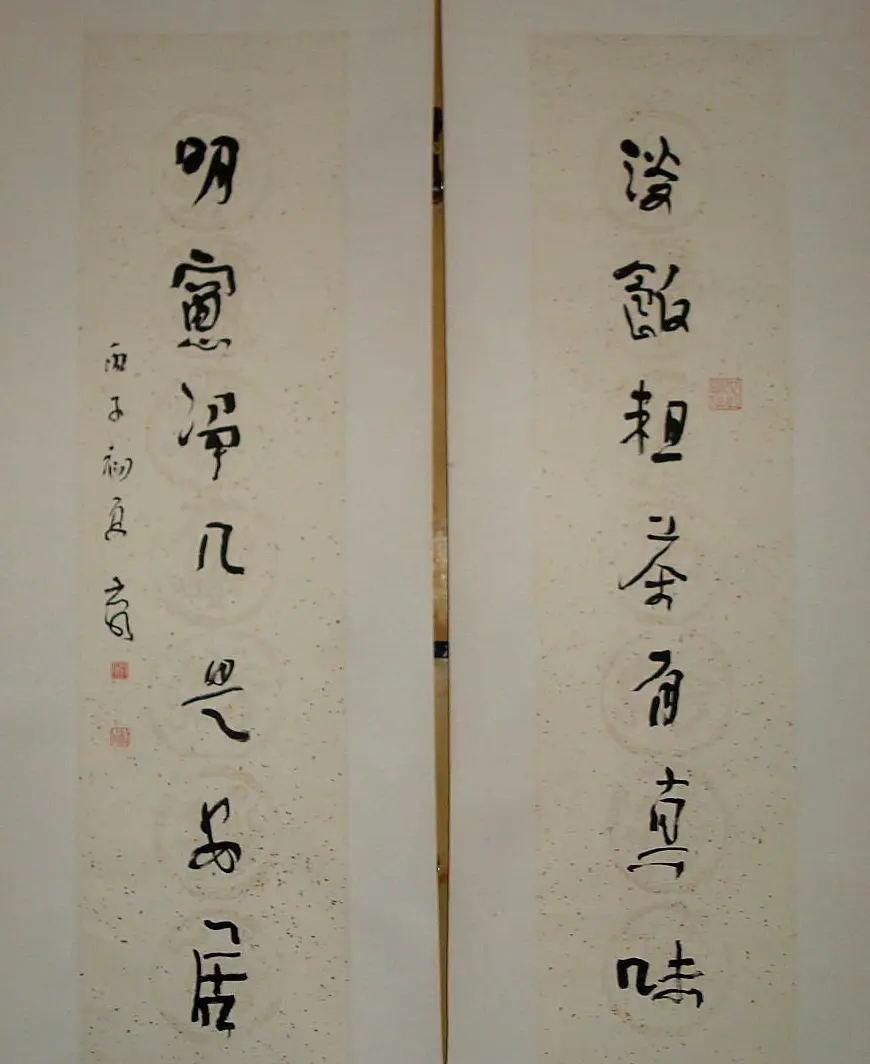 淡飯粗茶有真味
明窻淨几是安居
丙子初夏